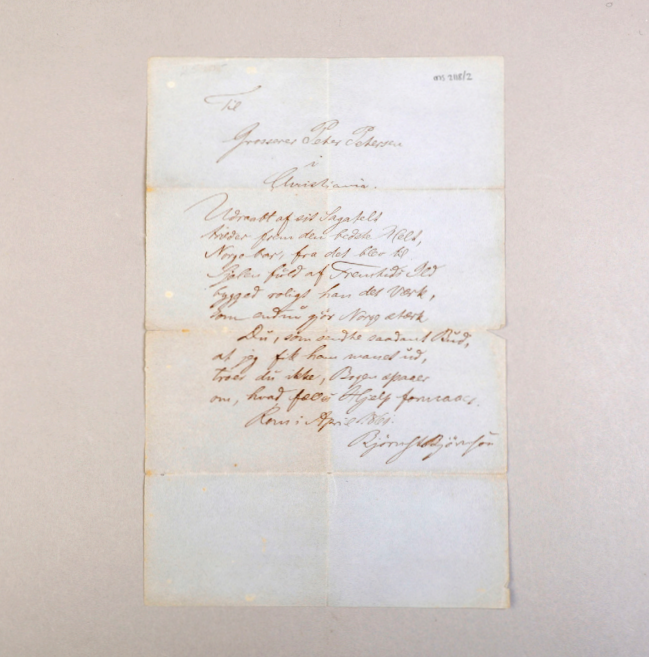 ms 2118/2
Til
Grosserer Peter Petersen
i
Christiania.
Udraabt af sit Sagatelt
træder frem den bedste Helt,
Norge bar, fra det blev til
Sjælen fuld af Fremtids Ild
bygged roligt han det Værk,
som endnu gjør Norge stærk.
Du, som sendte saadant Bud,
at jeg fik ham manet ud,
troer du ikke, Bogen spaaer
om, hvad Hjelp formaaer.
Rom i April 1861.
Bjørnst Bjørnson